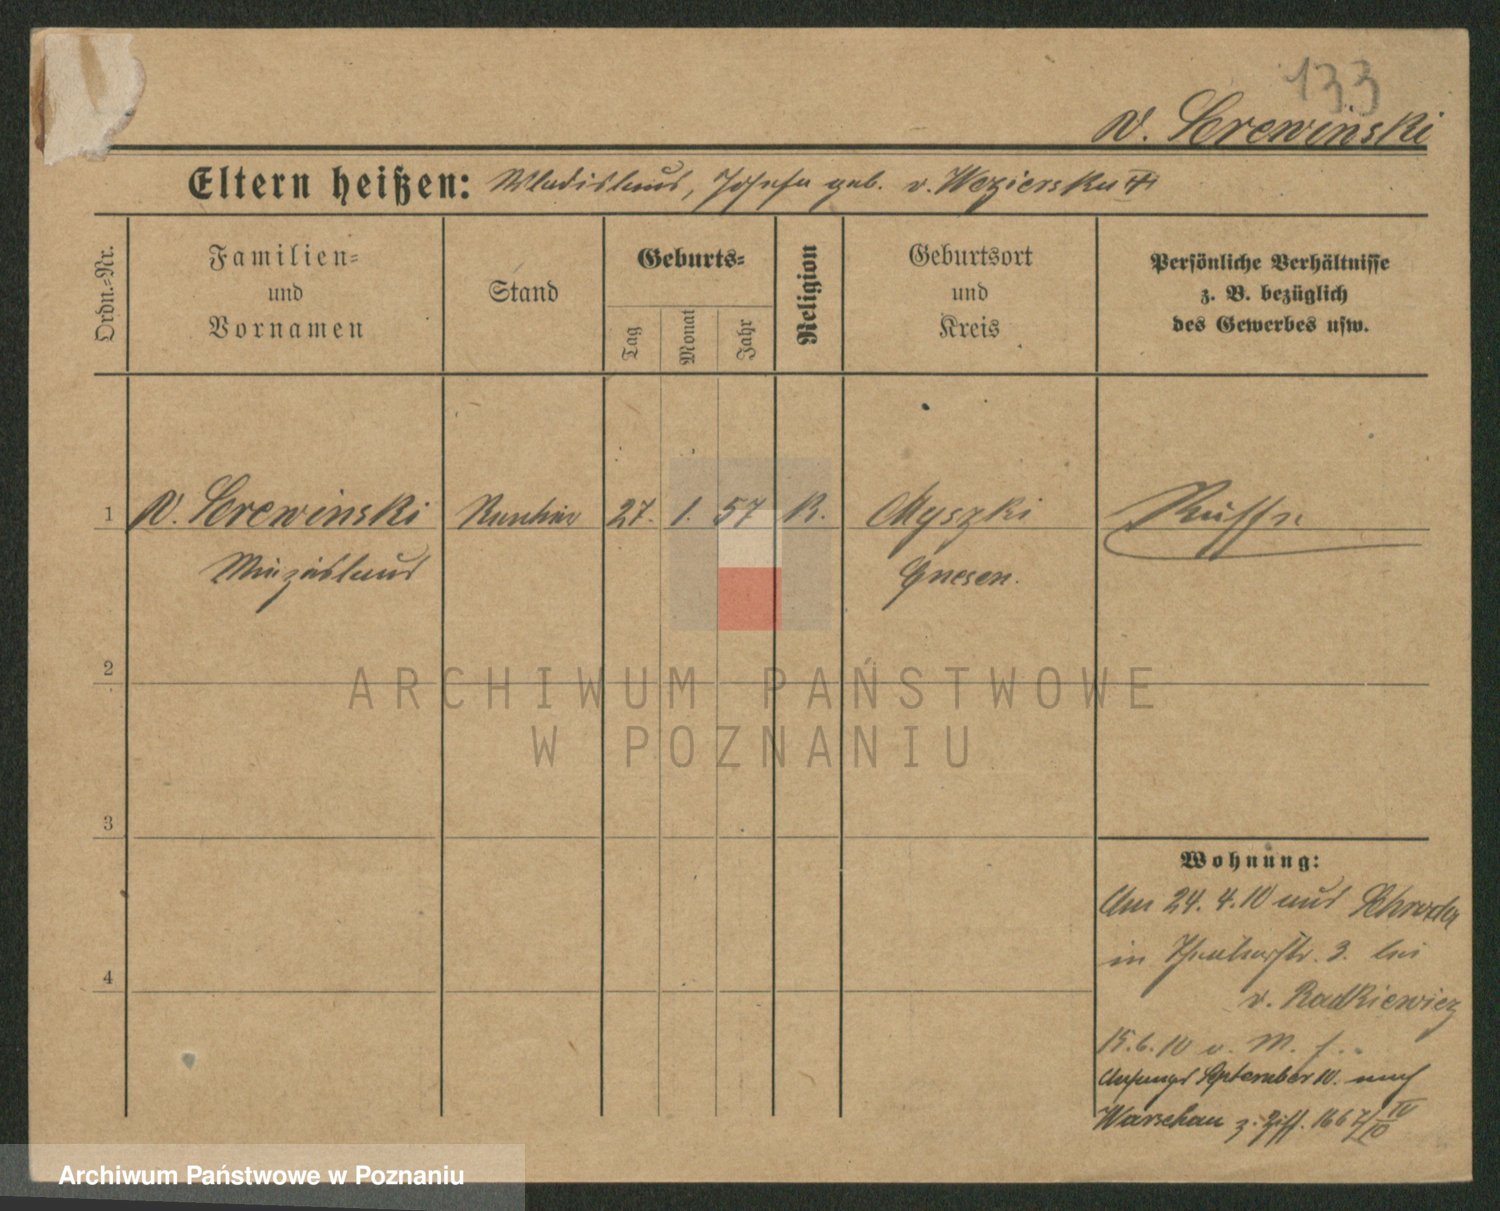 133
v. Krewinski
Eltern heißen: Wladislaus, Josefa geb. v. Wezierska
Ordn.-Nr.
Familien-
und
Vornamen
Stand
Geburts-
Tag
Monat
Jahr
Religion
Geburtsort
und
Kreis
Persönliche Verhältnisse
z. B. bezüglich
des Gewerbes usw.
1 v. Krewinski Rentier 27. 1. 57 K. Myszki Russe
Miezislaus Gnesen.
2
3
4
Wohnung:
Am 24. 4. 10 aus Schroda
in 3. bei
v. Radkiewicz
15. 6. 10 v. M. f.
Anfangs September 10. nach
Warschau z. Ziff. 1667/IV 10
ARCHIWUM PAŃSTWOWE
W POZNANIU
Archiwum Państwowe w Poznaniu